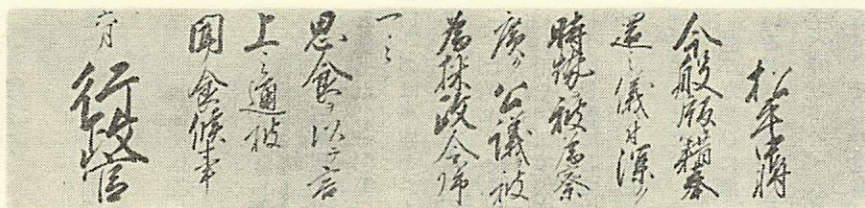 松平
今般版籍奉
還之儀付深ク
時勢被為察
廣ク公議被
為採政令帰
一之
思食ヲ以テ言
上之通被
聞食候事
六月
行政官